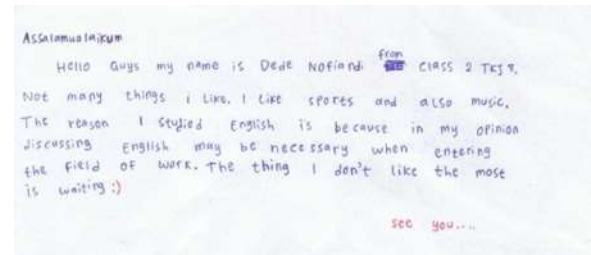 Assalamualaikum
Hello Guys my name is Dede Nofiandi from class 2 TKJ 8.
Not many things i Like. I Like sports and also music.
The reason I studied English is because in my opinion
discussing English may be necessary when entering
the field of work. The thing I don't like the most
is waiting :)
see you....